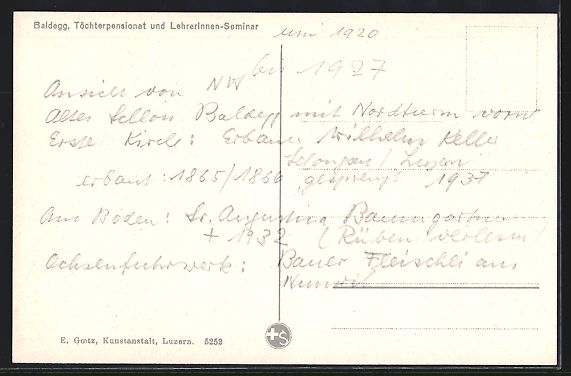 Baldegg, Töchterpensionat und Lehrerinnen-Seminar
um 1920
bis 1927
Ansicht von NW
Altes Schloss Baldegg mit Nordturm vorne
Erste Kirche: Erbauer Wilhelm Keller
Luzern
erbaut: 1865/1866 gesprengt 1937
Am Boden: Sr. Augustina Baumgartner
+ 1932 (Rüben verlesen)
Ochsenfuhrwerk: Bauer Fleischli aus
E. Gœtz, Kunstanstalt, Luzern. 5252
S